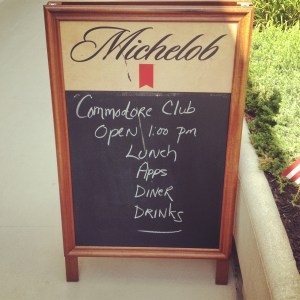 Michelob
Commodore Club
Open 1:00 pm
Lunch
Apps
Diner
Drinks